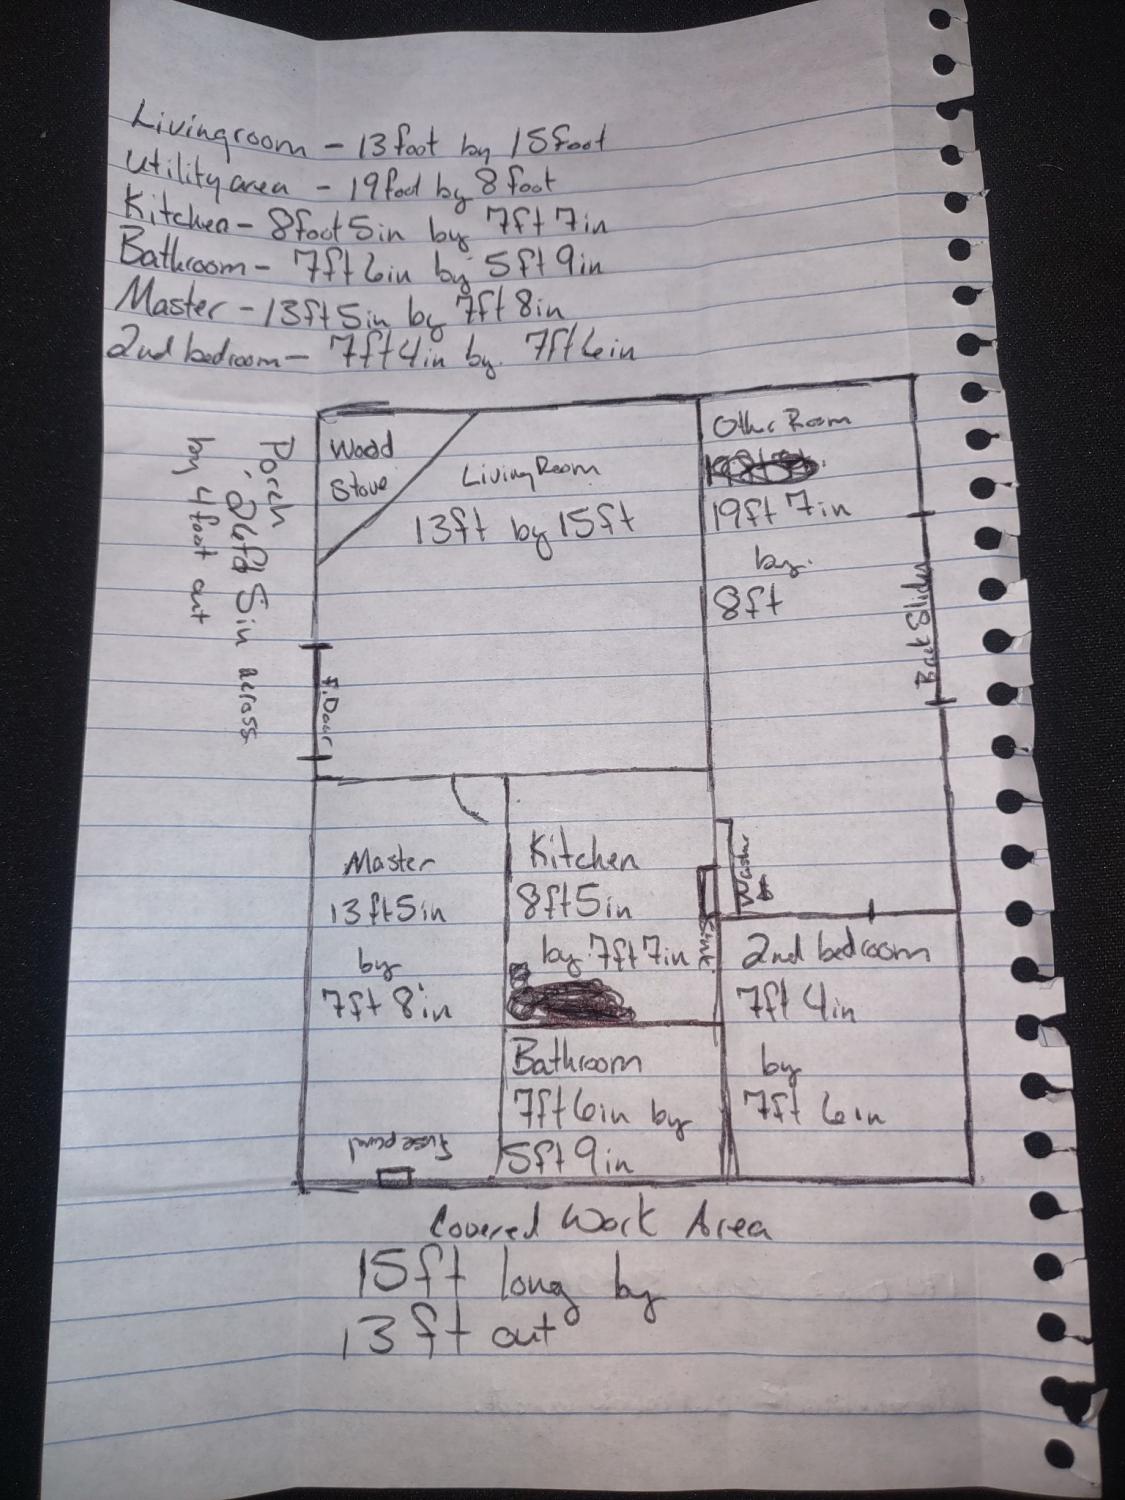 Livingroom - 13foot by 15foot
Utility area - 19foot by 8foot
Kitchen - 8foot 5in by 7ft 7in
Bathroom - 7ft 6in by 5ft 9in
Master - 13ft 5in by 7ft 8in
2nd bedroom - 7ft 4in by. 7ft 6in
Porch
5in across
by 4foot out
Wood
Stove
Living Room
13ft by 15ft
Other Room
19ft 7in
by.
8ft
Back Slider
F. Door
Master
13ft 5in
by
7ft 8in
Kitchen
8ft 5in
by 7ft 7in
Sink
Washer
2nd bedroom
7ft 4in
by
7ft 6in
Bathroom
7ft 6in by
5ft 9in
fuse panel
Covered Work Area
15ft long by
13ft out